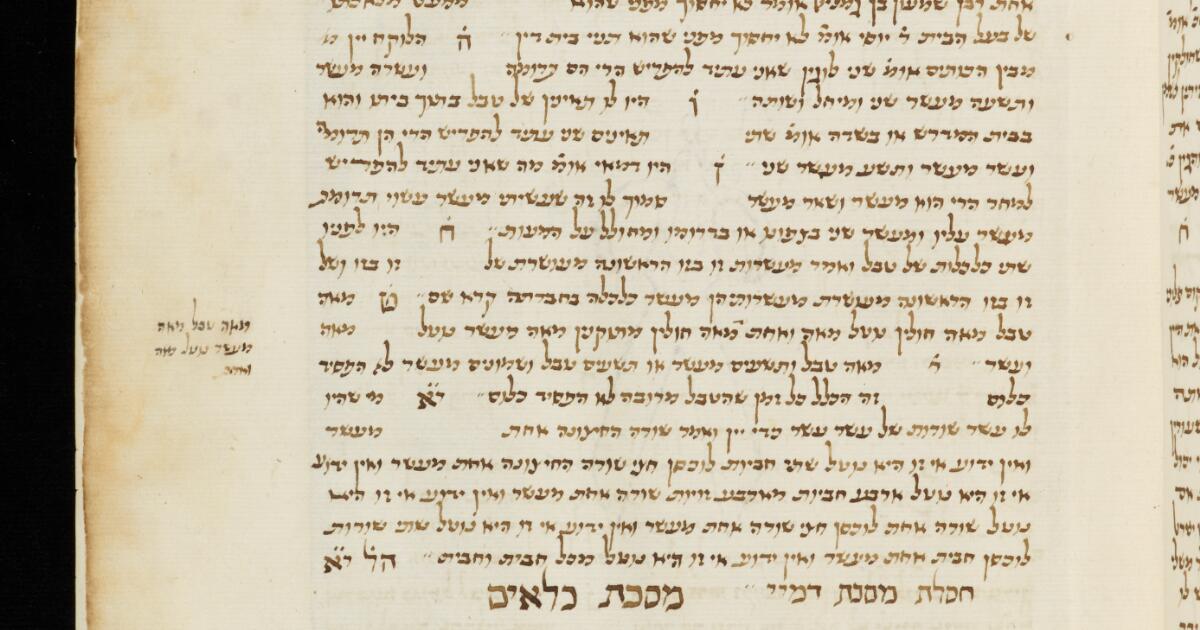 של בעל הבית ר׳ יוסי אומ׳ לא יחסוך מפני שהוא תניי בית דין ה׳ הלוקח יין מ
מבין הכותים אומ׳ שני לוגין שאני עתיד להפריש הרי הם תרומה ועשרה מעשר
ותשעה מעשר שני ומיחל ושותה ו׳ היו לו תאינין של טבל בתוך ביתו והוא
בבית המדרש או בשדה אומ׳ שתי תאינים שני עתיד להפריש הרי הן תרומ׳
ועשר מעשר ותשע מעשר שני ז׳ היו דמאי אומ׳ מה שאני עתיד להפריש
למחר הרי הוא מעשר ושאר מעשר סמוך לו זה שעשיתי מעשר עשוי תרומת
מעשר עליו ומעשר שני בצפונו או בדרומו ומחולל על המעות ח׳ היו לפניו
שתי כלכלות של טבל ואמר מעשרות זו בזו הראשונה מעושרת של זו בזו ושל
זו בזו הראשונה מעושרת מעשרותיהן מעשר כלכלה בחברתה קרא שם ט׳ מאה
טבל מאה חולין נוטל מאה ואחת מאה חולין מתוקנין מאה מעשר נוטל מאה
ועשר י׳ מאה טבל ותשעים מעשר או תשעים טבל ושמונים מעשר לא הפסיד
כלום זה הכלל כל זמן שהטבל מרובה לא הפסיד כלום י״א מי שהיו
לו עשר שורות של עשר עשר כדי יין ואמר שורה החיצונה אחת מעשר
ואין ידוע אי זו היא נוטל שתי חביות לוכסן חצי שורה החיצונה אחת מעשר ואין ידוע
אי זו היא נוטל ארבע חביות מארבע זויות שורה אחת מעשר ואין ידוע אי זו היא
נוטל שורה אחת לוכסן חצי שורה אחת מעשר ואין ידוע אי זו היא נוטל שתי שורות
לוכסן חבית אחת מעשר ואין ידוע אי זו היא נוטל מכל חבית וחבית הל׳ י״א
חסלת מסכת דמיי מסכת כלאים
מאה טבל מאה
מעשר נוטל מאה
ואחת